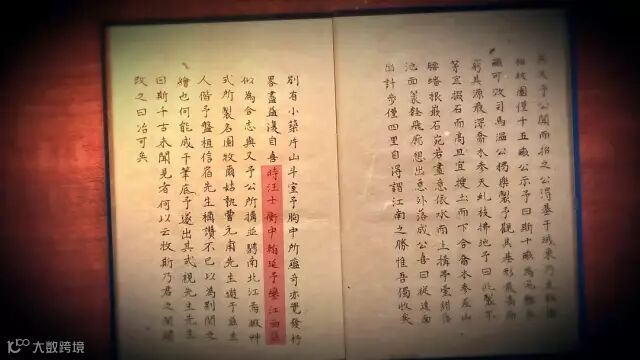 公聞而招之公得基于城東乃元朝溫
相故園僅十五畝公示予曰斯十畝為宅餘五
畝可效司馬溫公獨樂製予觀其基形最高而
窮其源最深喬木參天虬枝拂地予曰此製不
第宜掇石而高且宜搜土而下合喬木參差山
腰蟠根嵌石宛若畫意依水而上構亭臺錯落
池面篆壑飛廊想出意外落成公喜曰從進而
出計步僅四里自得謂江南之勝惟吾獨收矣
別有小築片山斗室予胸中所蘊奇亦覺發抒
畧盡益復自喜時汪士衡中翰延予鑾江西築
似為合志與又予公所構並騁南北江焉暇艸
式所製名園牧爾姑孰曹元甫先生遊于茲主
人偕予盤桓信宿先生稱讚不已以為荊關之
繪也何能成于筆底予遂出其式視先生先生
曰斯千古未聞見者何以云牧斯乃君之開闢
改之曰冶可矣
大数跨境